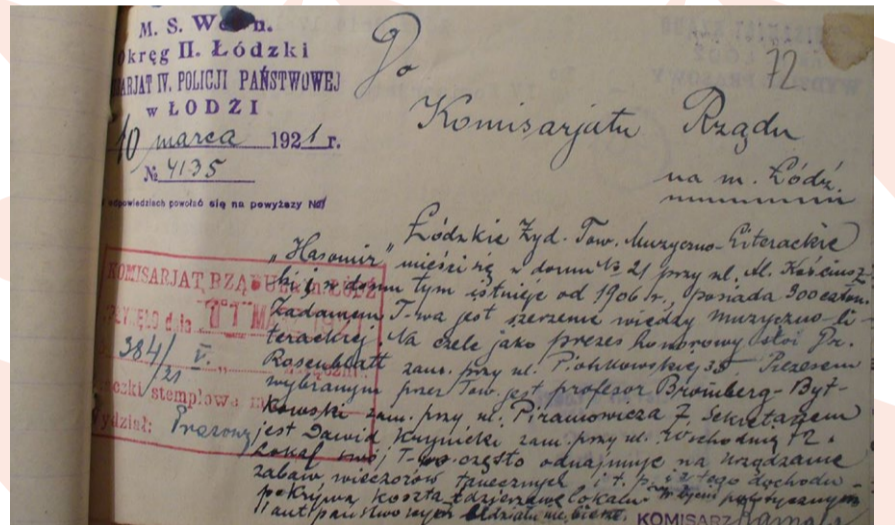 M. S. Wewn.
Okręg II. Łódzki
KOMISARJAT IV. POLICJI PAŃSTWOWEJ
w ŁODZI
10 marca 1921 r.
№ 4135
odpowiedziach powołać się na powyższy №
72
Do
Komisarjatu Rządu
na m. Łódź.
Łódzkie Żyd. Tow. Muzyczno-Literackie
„Hasomir” mieści się w domu № 21 przy ul. Al. Kościusz-
ki i w domu tym istnieje od 1906 r., posiada 300 członk.
Zadaniem T-wa jest szerzenie wiedzy muzyczno-li-
terackiej. Na czele jako prezes honorowy stoi Dr.
Rosenblatt zam. przy ul. Piotrkowskiej 35. Prezesem
wybranym przez Tow. jest profesor Bromberg-Byt-
kowski zam. przy ul. Piramowicza 7, sekretarzem
jest Dawid Krynicki zam. przy ul. Wschodniej 72.
Lokal swój T-wo często odnajmuje na urządzanie
zabaw, wieczorów tanecznych i t. p. i z tego dochodu
pokrywa koszta dzierżawy lokalu. W życiu politycznym
i antypaństwowych udziału nie bierze.
KOMISARZ
KOMISARJAT RZĄDU na m. ŁÓDŹ
dnia 11 MAR 1921
384/21 V.
stemplowa
Wydział: Prasowy